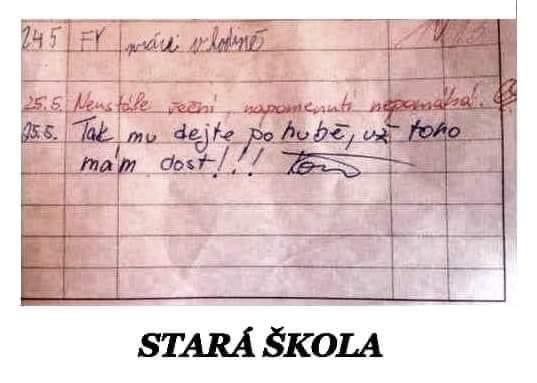 24.5 FY práci v hodině
25.5. Neustále ječní, napomenutí nepomáhá!
25.5. Tak mu dejte po hubě, už toho
mám dost!!!
STARÁ ŠKOLA